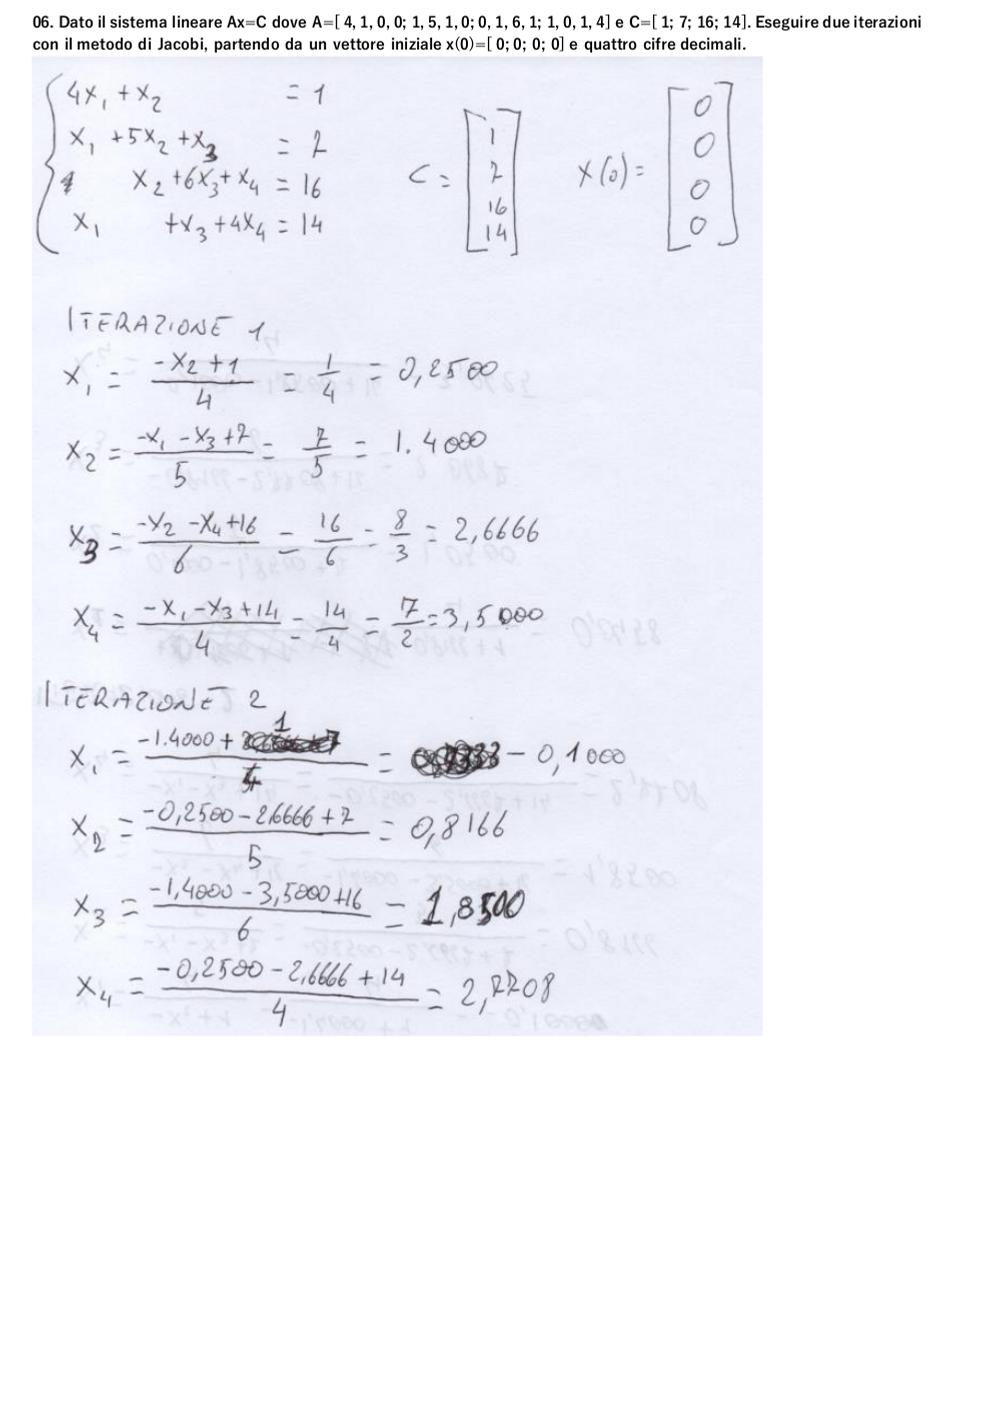 06. Dato il sistema lineare Ax=C dove A=[ 4, 1, 0, 0; 1, 5, 1, 0; 0, 1, 6, 1; 1, 0, 1, 4] e C=[ 1; 7; 16; 14]. Eseguire due iterazioni
con il metodo di Jacobi, partendo da un vettore iniziale x(0)=[ 0; 0; 0; 0] e quattro cifre decimali.
4x₁ + x₂ = 1
x₁ + 5x₂ + x₃ = 7
x₂ + 6x₃ + x₄ = 16
x₁ + x₃ + 4x₄ = 14
C = [1 7 16 14]
x(0) = [0 0 0 0]
ITERAZIONE 1
x₁ = (-x₂ + 1)/4 = 1/4 = 0,2500
x₂ = (-x₁ - x₃ + 7)/5 = 7/5 = 1.4000
x₃ = (-x₂ - x₄ + 16)/6 = 16/6 = 8/3 = 2,6666
x₄ = (-x₁ - x₃ + 14)/4 = 14/4 = 7/2 = 3,5000
ITERAZIONE 2
x₁ = (-1.4000 + 1)/4 = - 0,1000
x₂ = (-0,2500 - 2,6666 + 7)/5 = 0,8166
x₃ = (-1,4000 - 3,5000 + 16)/6 = 1,8500
x₄ = (-0,2500 - 2,6666 + 14)/4 = 2,7708